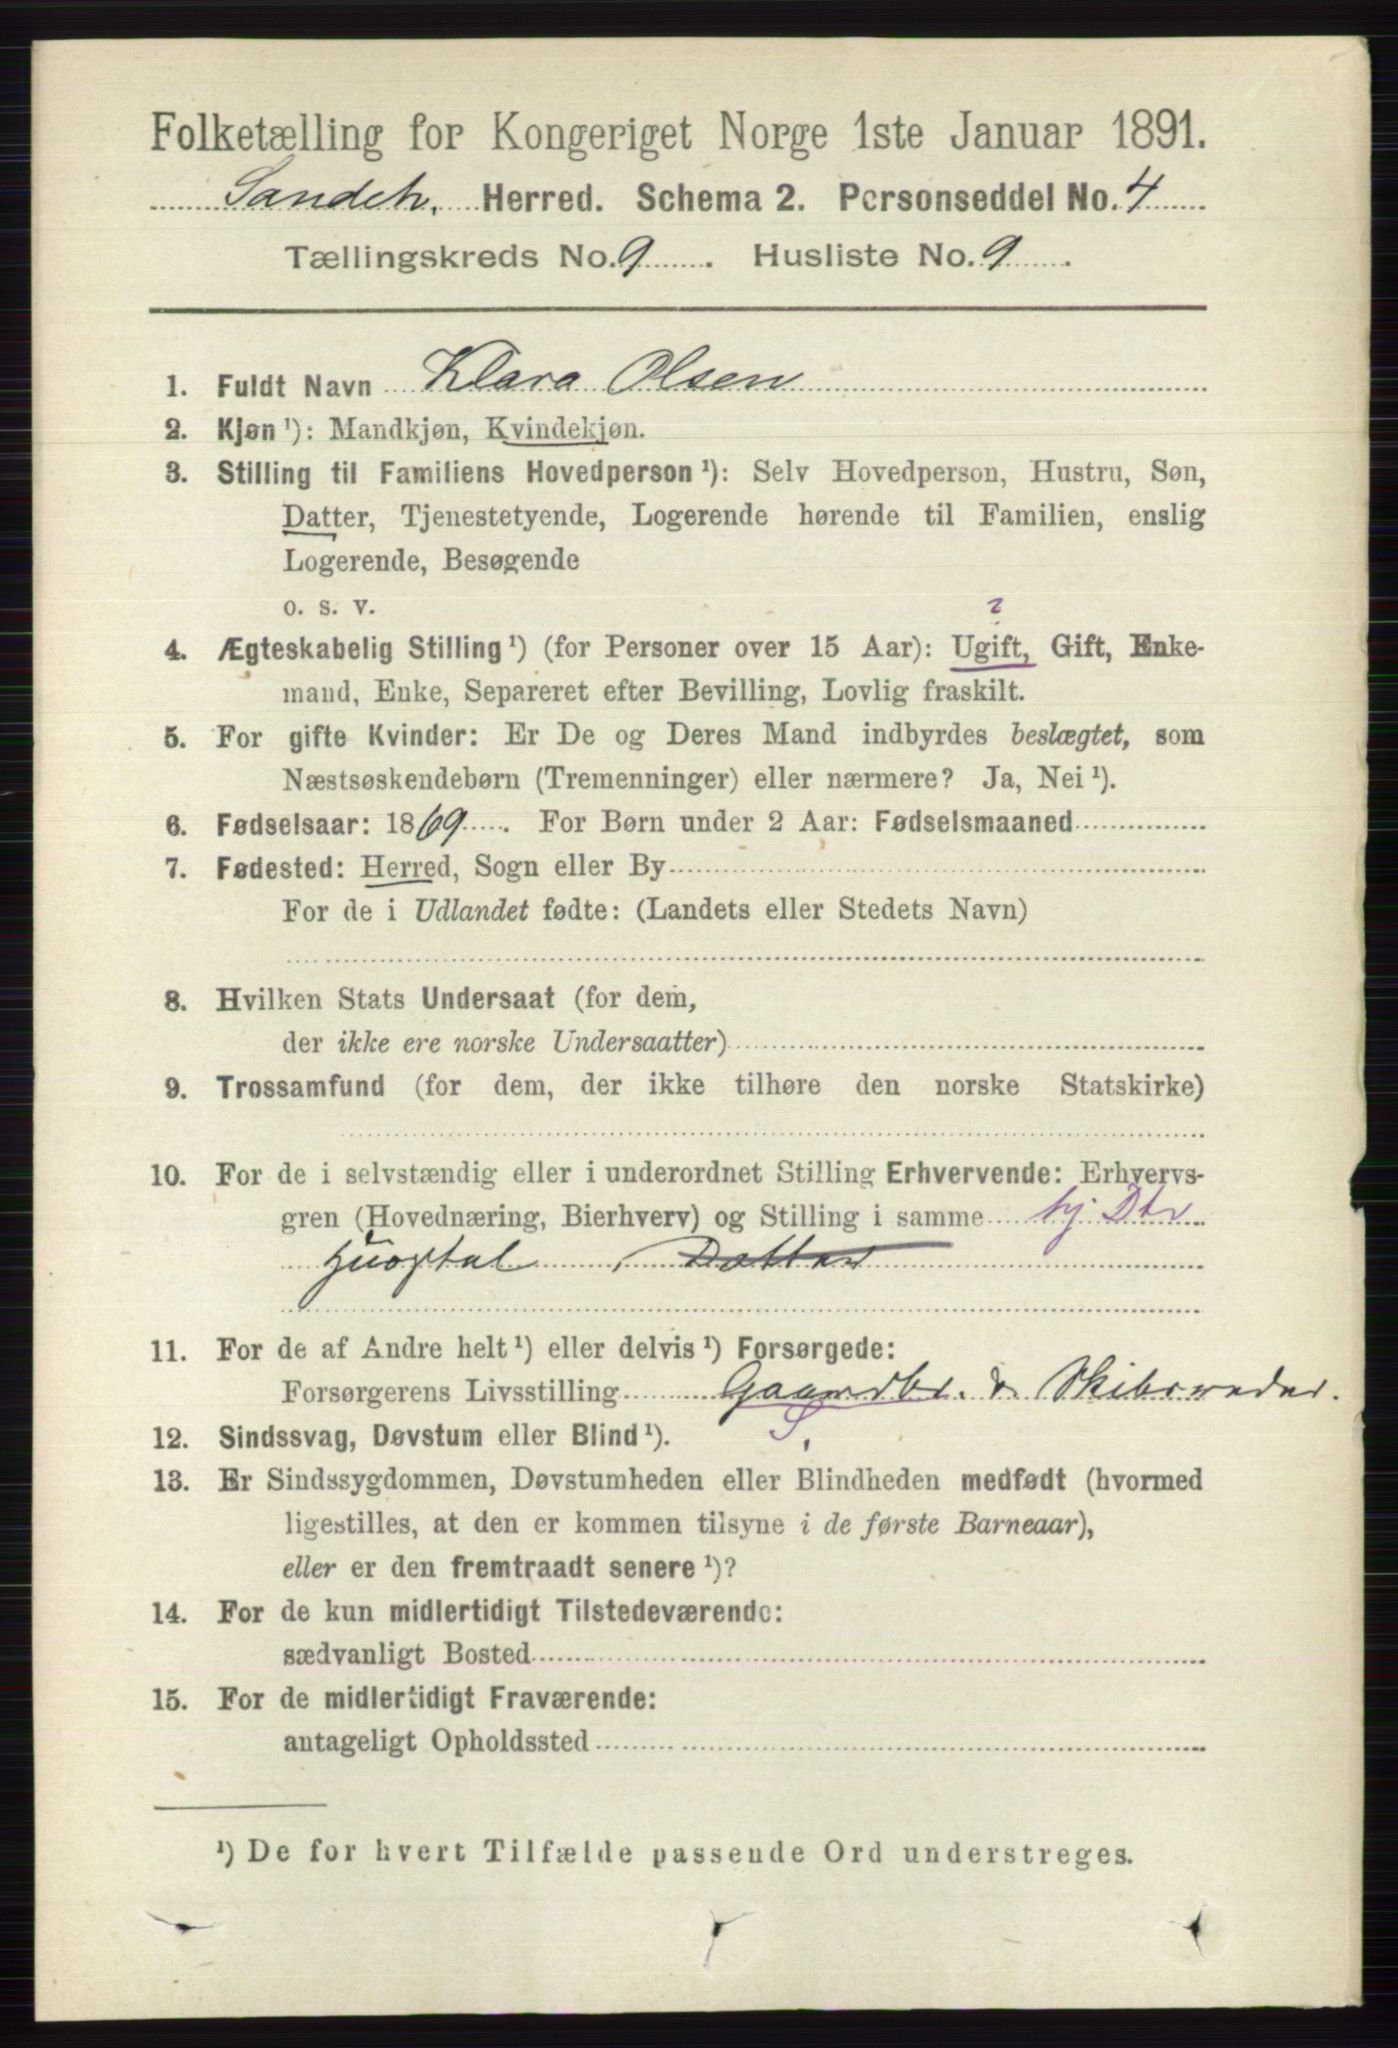 Folketælling for Kongeriget Norge 1ste Januar 1891.
Sandeh. Herred. Schema 2. Personseddel No. 4
Tællingskreds No. 9. Husliste No. 9.
1. Fuldt Navn Klara Olsen
2. Kjøn ¹): Mandkjøn, Kvindekjøn.
3. Stilling til Familiens Hovedperson ¹): Selv Hovedperson, Hustru, Søn,
Datter, Tjenestetyende, Logerende hørende til Familien, enslig
Logerende, Besøgende
o. s. v.
?
4. Ægteskabelig Stilling ¹) (for Personer over 15 Aar): Ugift, Gift, Enke-
mand, Enke, Separeret efter Bevilling, Lovlig fraskilt.
5. For gifte Kvinder: Er De og Deres Mand indbyrdes beslægtet, som
Næstsøskendebørn (Tremenninger) eller nærmere? Ja, Nei ¹).
6. Fødselsaar: 1869. For Børn under 2 Aar: Fødselsmaaned
7. Fødested: Herred, Sogn eller By
For de i Udlandet fødte: (Landets eller Stedets Navn)
8. Hvilken Stats Undersaat (for dem,
der ikke ere norske Undersaatter)
9. Trossamfund (for dem, der ikke tilhøre den norske Statskirke)
10. For de i selvstændig eller i underordnet Stilling Erhvervende: Erhvervs-
gren (Hovednæring, Bierhverv) og Stilling i samme hj Dtr
Datter
11. For de af Andre helt ¹) eller delvis ¹) Forsørgede:
Forsørgerens Livsstilling Gaardbr. & Skibsreder.
S.
12. Sindssvag, Døvstum eller Blind ¹).
13. Er Sindssygdommen, Døvstumheden eller Blindheden medfødt (hvormed
ligestilles, at den er kommen tilsyne i de første Barneaar),
eller er den fremtraadt senere ¹)?
14. For de kun midlertidigt Tilstedeværende:
sædvanligt Bosted
15. For de midlertidigt Fraværende:
antageligt Opholdssted
¹) De for hvert Tilfælde passende Ord understreges.